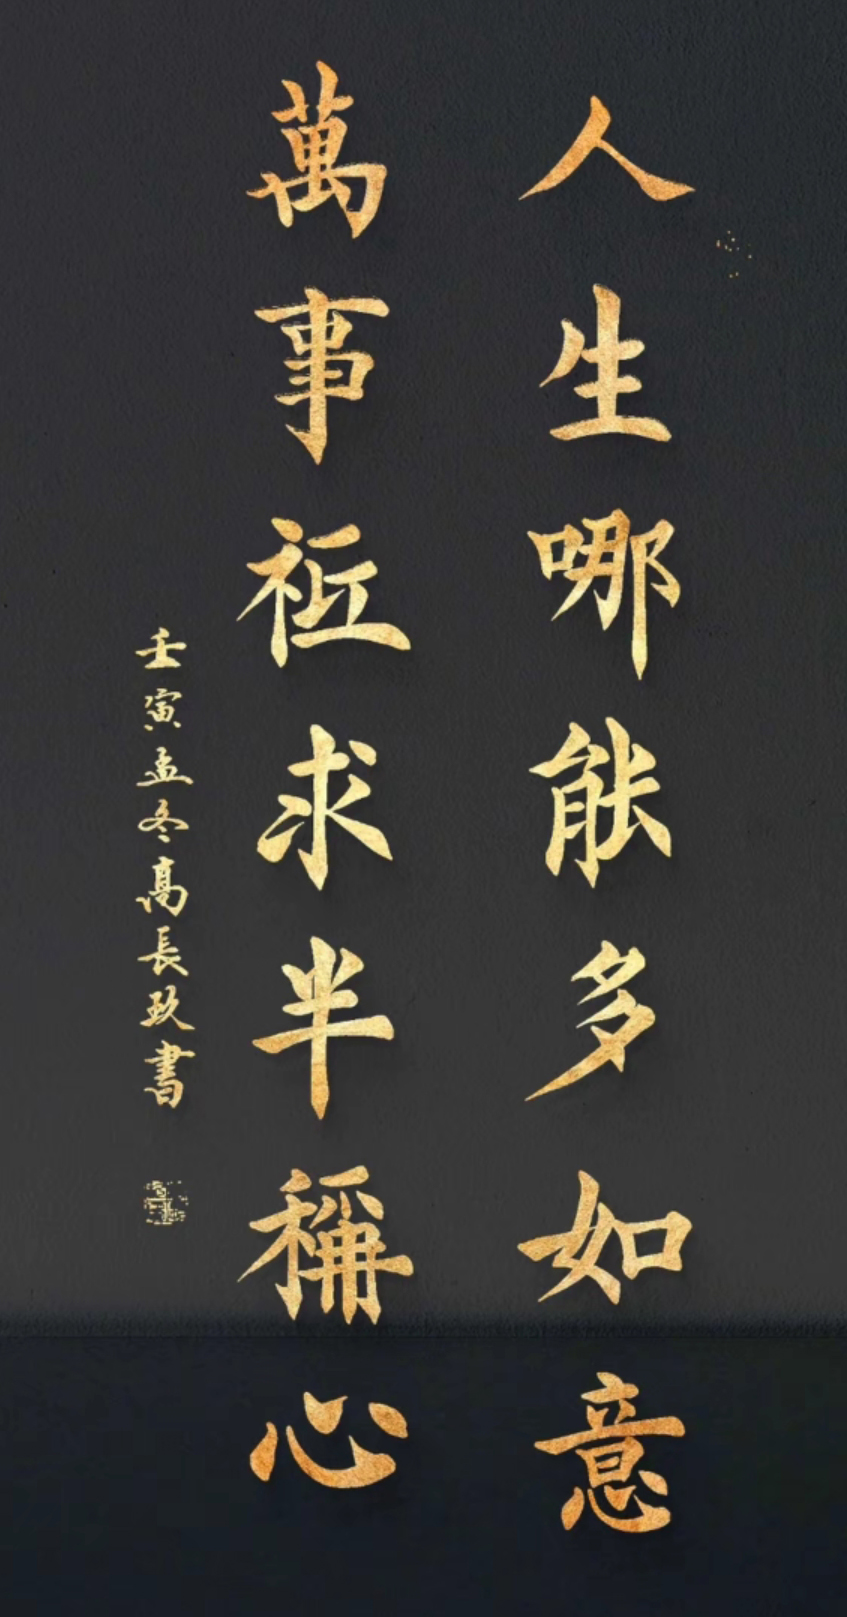 人生哪能多如意
萬事衹求半稱心
壬寅孟冬高長玖書